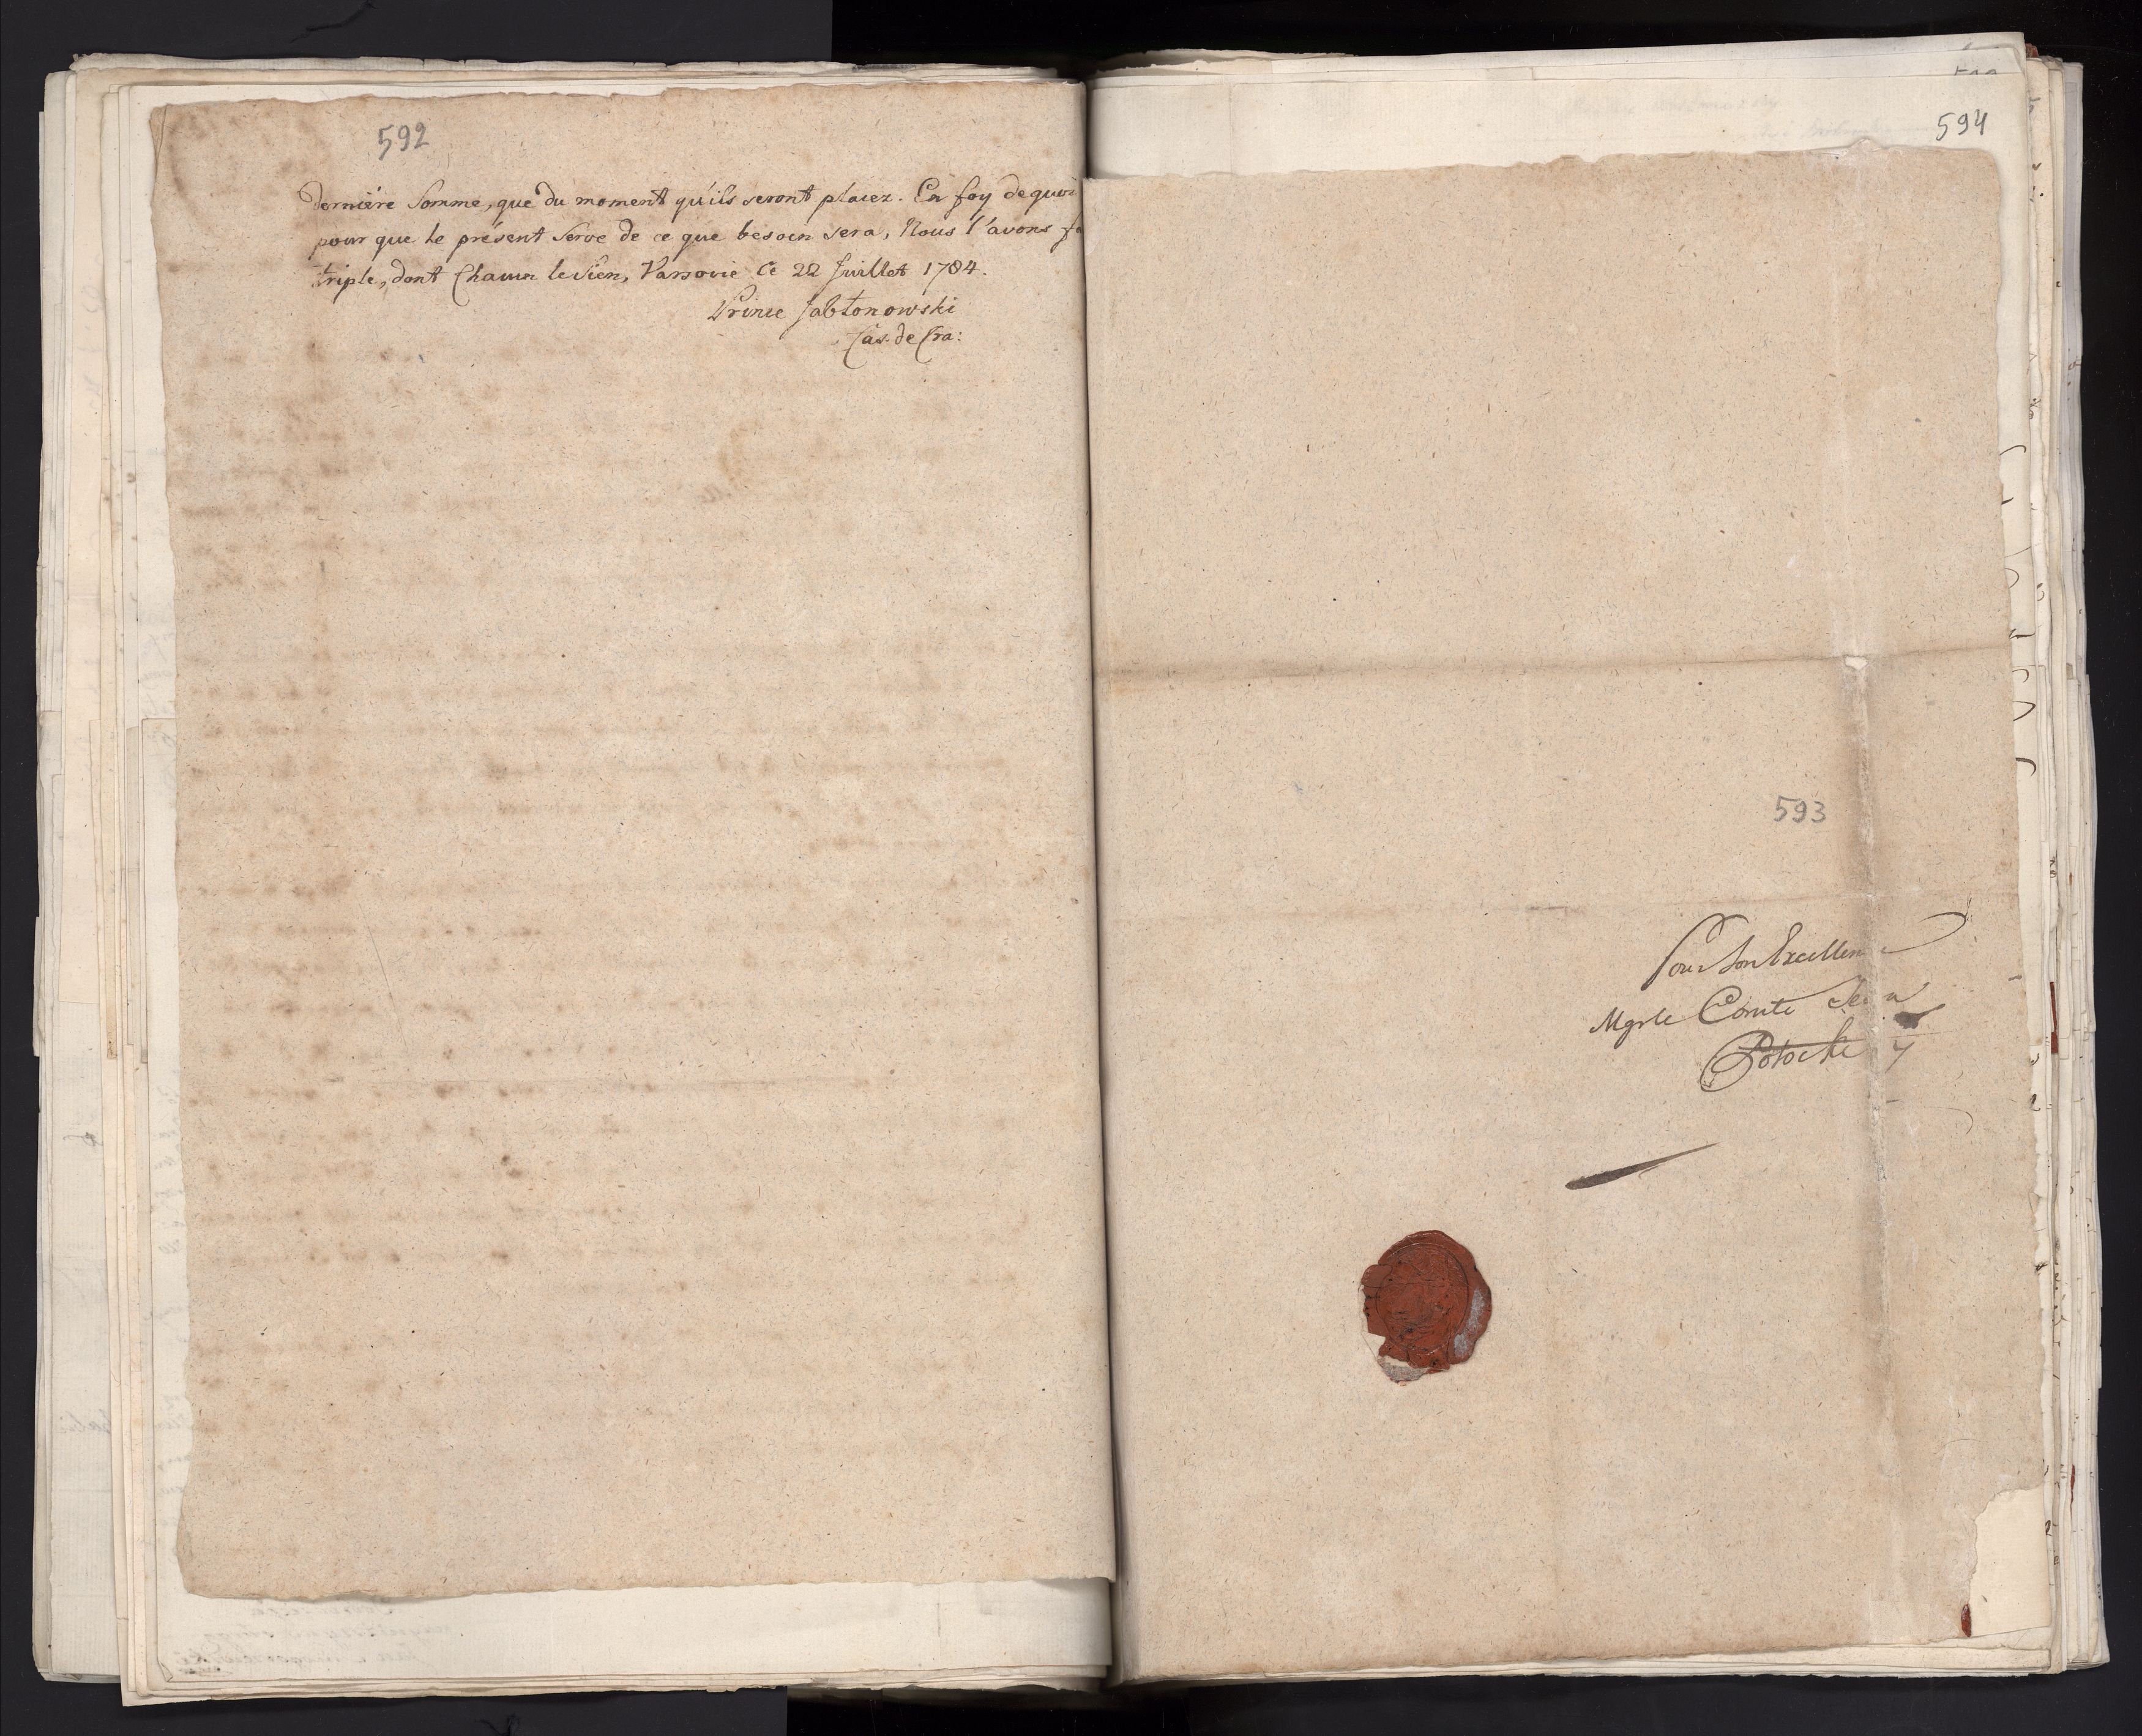 592
derniére Somme, que du moment qu'ils seront placez. En foy de quoi
pour que le présent Serve de ce que besoin sera, Nous l'avons
triple, dont Chacun le Sien, Varsovie Ce 22 Juillet 1784.
Prince Jabłonowski
Cas. de Cra:
594
593
Pour Son Excellen
Mgr le Comte
Potocki